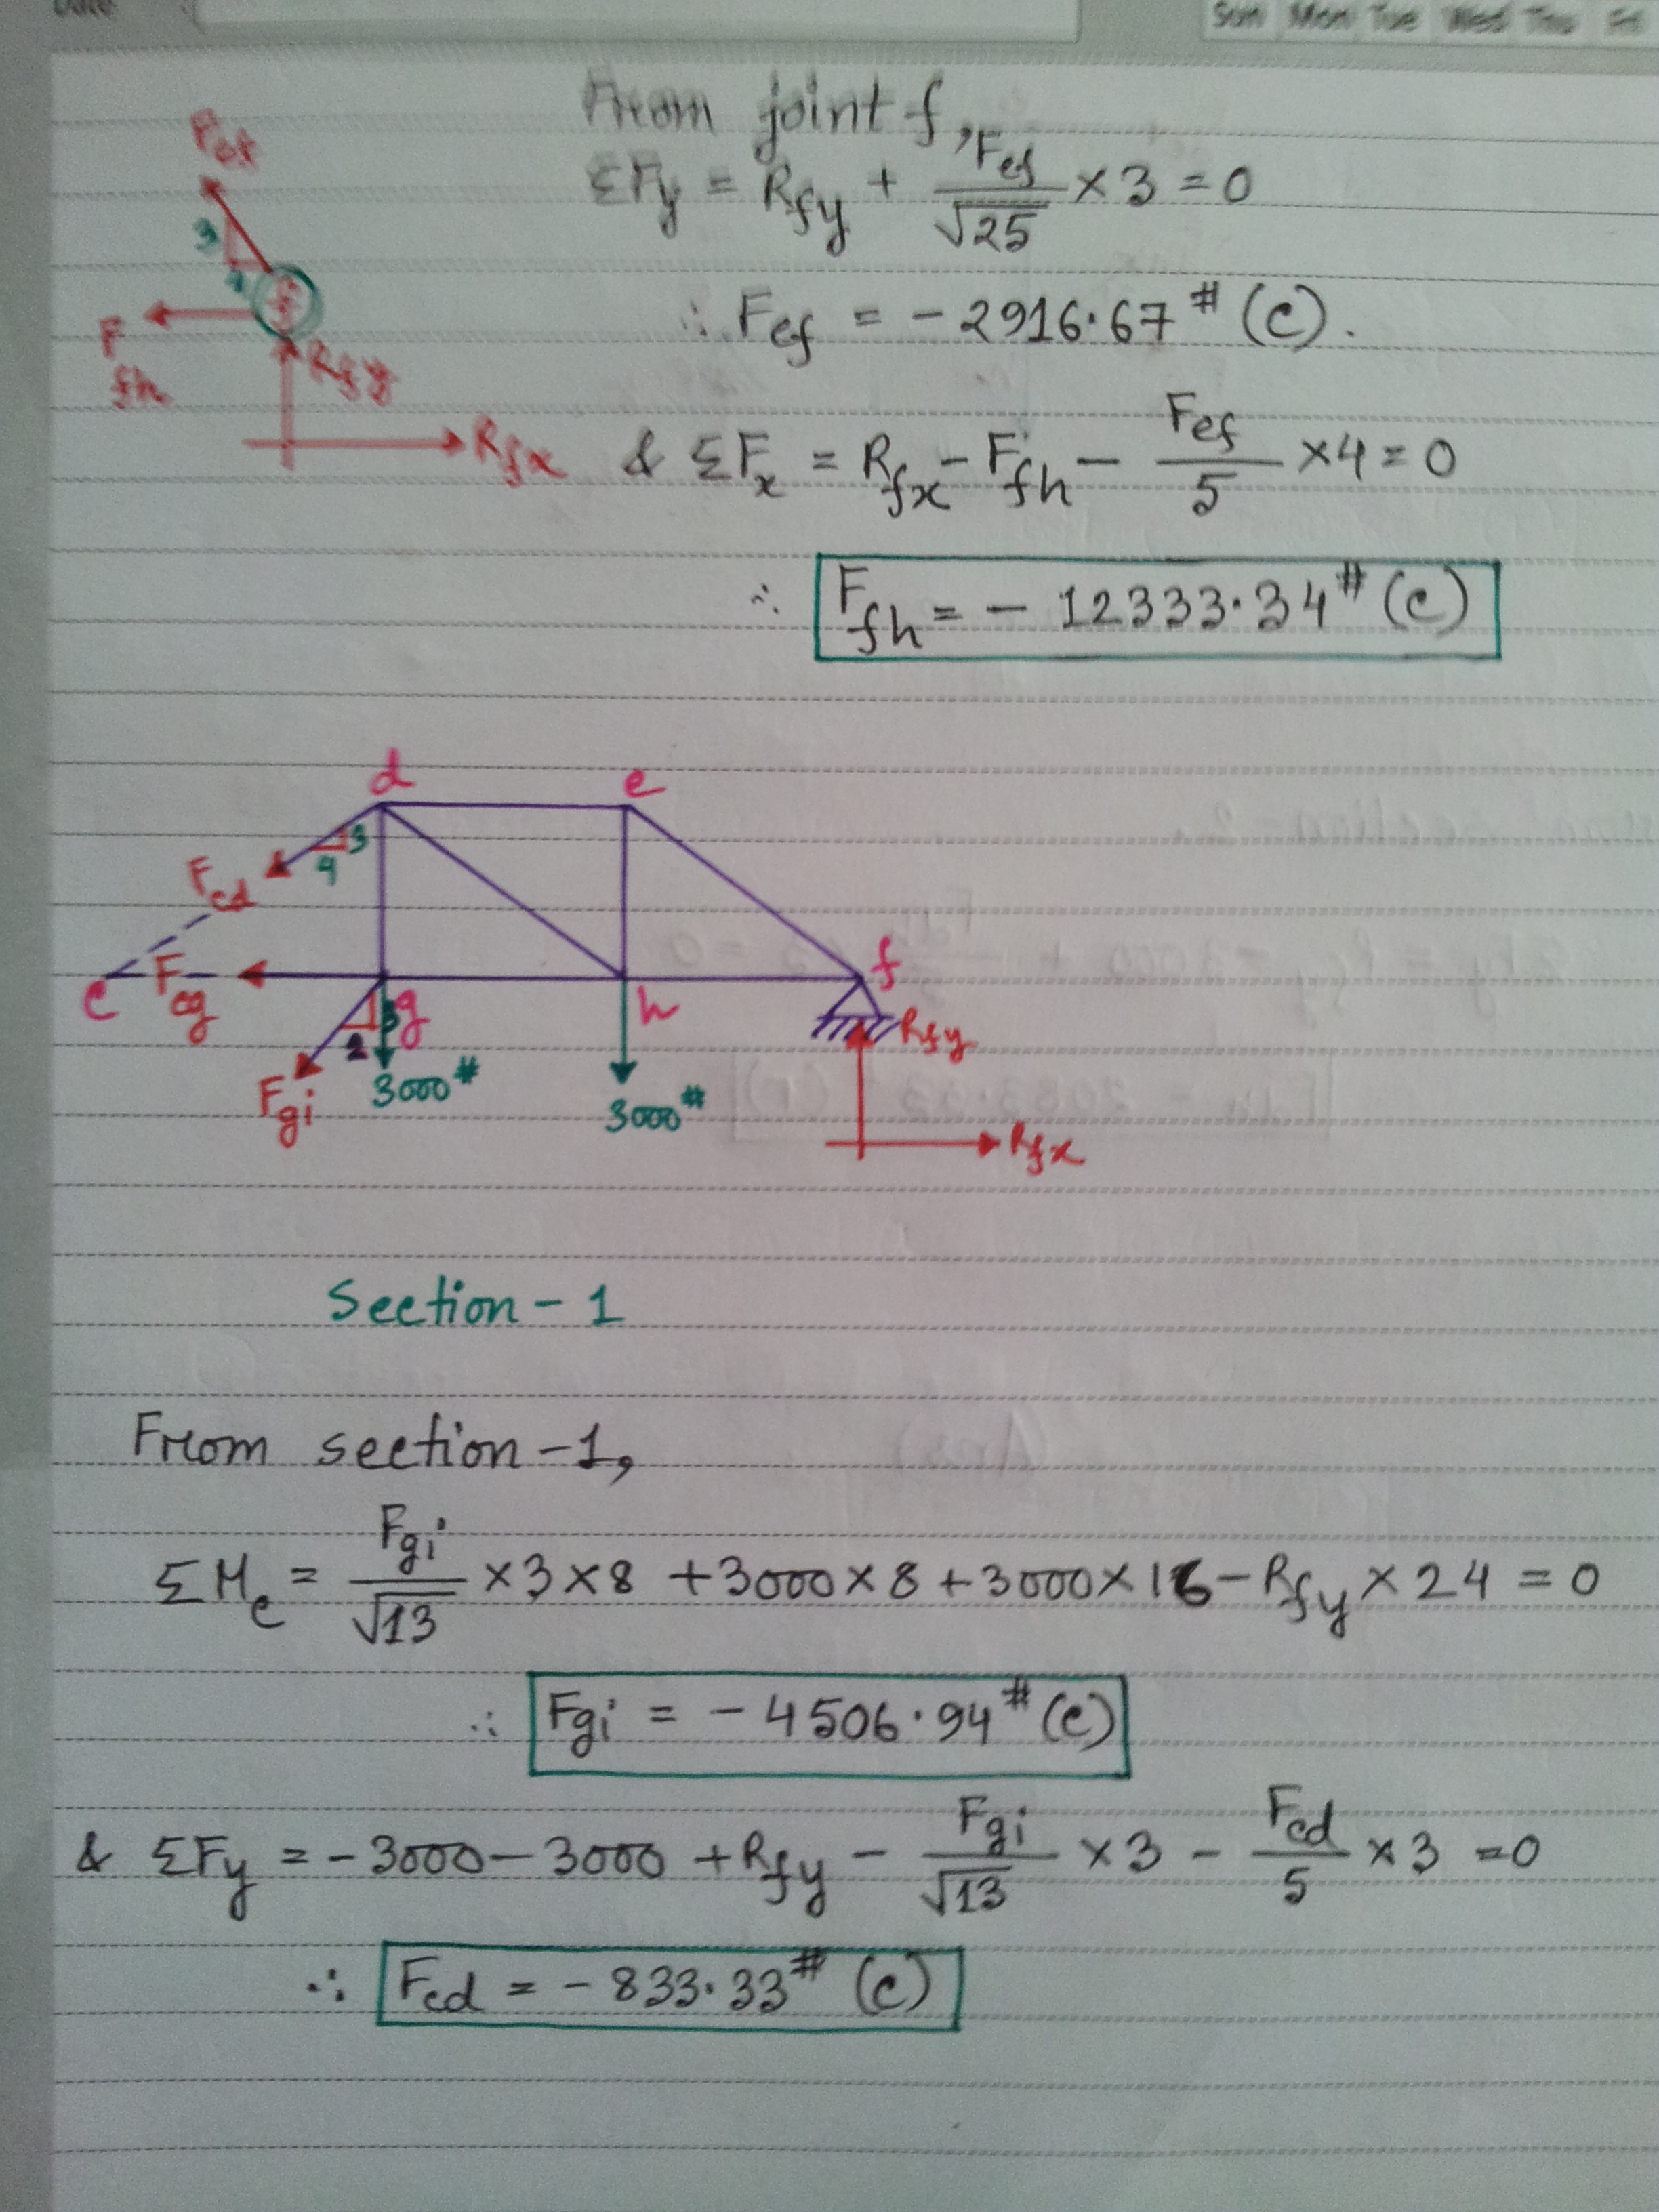 Date
Sun Mon Tue Wed Thu Fri
From joint f,
ΣFy = Rfy + Fef/√25 × 3 = 0
∴ Fef = - 2916.67# (C).
Fef
3
4
f
F fh
Rfy
Rfx
& ΣFx = Rfx - Ffh - Fef/5 × 4 = 0
∴ Ffh = - 12333.34# (C)
d
e
3
4
Fcd
c
Fcg
g
h
f
3
2
Fgi
3000#
3000#
Rfy
Rfx
Section - 1
From section - 1,
ΣMc = Fgi/√13 × 3 × 8 + 3000 × 8 + 3000 × 16 - Rfy × 24 = 0
∴ Fgi = - 4506.94# (C)
& ΣFy = - 3000 - 3000 + Rfy - Fgi/√13 × 3 - Fcd/5 × 3 = 0
∴ Fcd = - 833.33# (C)